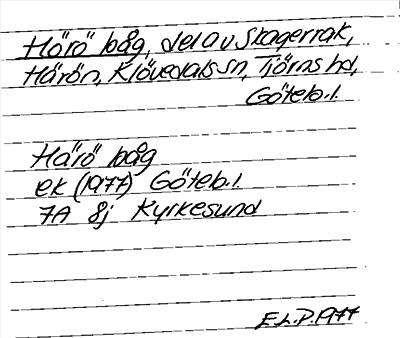 Härö båg, del av Skagerrak,
Härön, Klövedals sn, Tjörns hd,
Göteb.l.
Härö båg
ek (1977) Göteb.l.
7A 8j Kyrkesund
E.L.P. 1977